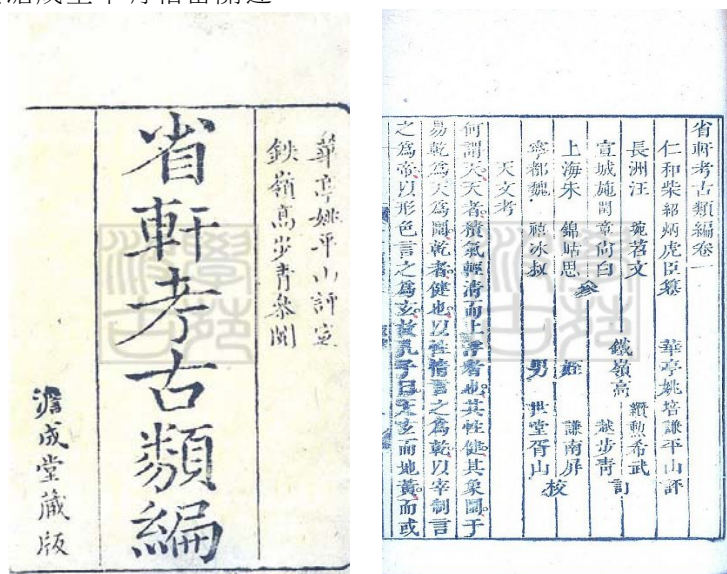 華亭姚平山評定
鉄嶺高步青參閱
省軒考古類編
澹成堂藏版
省軒考古類編卷一
仁和柴紹炳虎臣纂 華亭姚培謙平山評
長洲汪 琬苕文 鐵嶺高 纘勲希武
宣城施閏章尚白 參 步青 訂
上海朱 錦岵思 姪 謙南屏
寧都魏 禧冰叔 男 世堂胥山 校
天文考
何謂天天者積氣輕清而上浮者也其性健其象圓于
易乾為天為圜乾者健也以性情言之為乾以宰制言
之為帝以形色言之為玄故孔子曰天玄而地黃而或
學苑汲古
學苑汲古